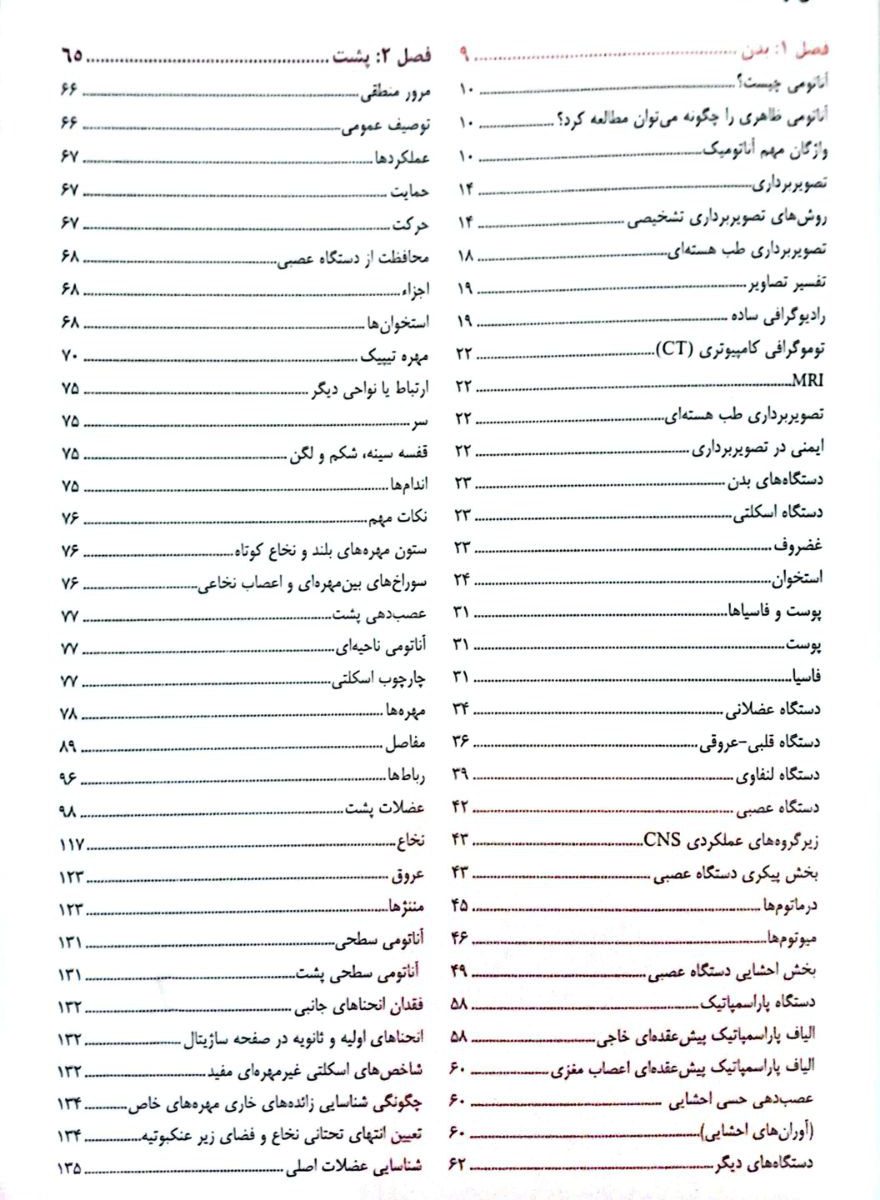 فصل ۱: بدن ........ ۹
آناتومی چیست؟ ........ ۱۰
آناتومی ظاهری را چگونه می‌توان مطالعه کرد؟ ........ ۱۰
واژگان مهم آناتومیک ........ ۱۰
تصویربرداری ........ ۱۴
روش‌های تصویربرداری تشخیصی ........ ۱۴
تصویربرداری طب هسته‌ای ........ ۱۸
تفسیر تصاویر ........ ۱۹
رادیوگرافی ساده ........ ۱۹
توموگرافی کامپیوتری (CT) ........ ۲۲
MRI ........ ۲۲
تصویربرداری طب هسته‌ای ........ ۲۲
ایمنی در تصویربرداری ........ ۲۲
دستگاه‌های بدن ........ ۲۳
دستگاه اسکلتی ........ ۲۳
غضروف ........ ۲۳
استخوان ........ ۲۴
پوست و فاسیاها ........ ۳۱
پوست ........ ۳۱
فاسیا ........ ۳۱
دستگاه عضلانی ........ ۳۴
دستگاه قلبی-عروقی ........ ۳۶
دستگاه لنفاوی ........ ۳۹
دستگاه عصبی ........ ۴۲
زیرگروه‌های عملکردی CNS ........ ۴۳
بخش پیکری دستگاه عصبی ........ ۴۳
درماتوم‌ها ........ ۴۵
میوتوم‌ها ........ ۴۶
بخش احشایی دستگاه عصبی ........ ۴۹
دستگاه پاراسمپاتیک ........ ۵۸
الیاف پاراسمپاتیک پیش‌عقده‌ای خاجی ........ ۵۸
الیاف پاراسمپاتیک پیش‌عقده‌ای اعصاب مغزی ........ ۶۰
عصب‌دهی حسی احشایی ........ ۶۰
(آوران‌های احشایی) ........ ۶۰
دستگاه‌های دیگر ........ ۶۲
فصل ۲: پشت ........ ۶۵
مرور منطقی ........ ۶۶
توصیف عمومی ........ ۶۶
عملکردها ........ ۶۷
حمایت ........ ۶۷
حرکت ........ ۶۷
محافظت از دستگاه عصبی ........ ۶۸
اجزاء ........ ۶۸
استخوان‌ها ........ ۶۸
مهره تیپیک ........ ۷۰
ارتباط یا نواحی دیگر ........ ۷۵
سر ........ ۷۵
قفسه سینه، شکم و لگن ........ ۷۵
اندام‌ها ........ ۷۵
نکات مهم ........ ۷۶
ستون مهره‌های بلند و نخاع کوتاه ........ ۷۶
سوراخ‌های بین‌مهره‌ای و اعصاب نخاعی ........ ۷۶
عصب‌دهی پشت ........ ۷۷
آناتومی ناحیه‌ای ........ ۷۷
چارچوب اسکلتی ........ ۷۷
مهره‌ها ........ ۷۸
مفاصل ........ ۸۹
رباط‌ها ........ ۹۶
عضلات پشت ........ ۹۸
نخاع ........ ۱۱۷
عروق ........ ۱۲۳
مننژها ........ ۱۲۳
آناتومی سطحی ........ ۱۳۱
آناتومی سطحی پشت ........ ۱۳۱
فقدان انحناهای جانبی ........ ۱۳۲
انحناهای اولیه و ثانویه در صفحه ساژیتال ........ ۱۳۲
شاخص‌های اسکلتی غیرمهره‌ای مفید ........ ۱۳۲
چگونگی شناسایی زائده‌های خاری مهره‌های خاص ........ ۱۳۴
تعیین انتهای تحتانی نخاع و فضای زیر عنکبوتیه ........ ۱۳۴
شناسایی عضلات اصلی ........ ۱۳۵